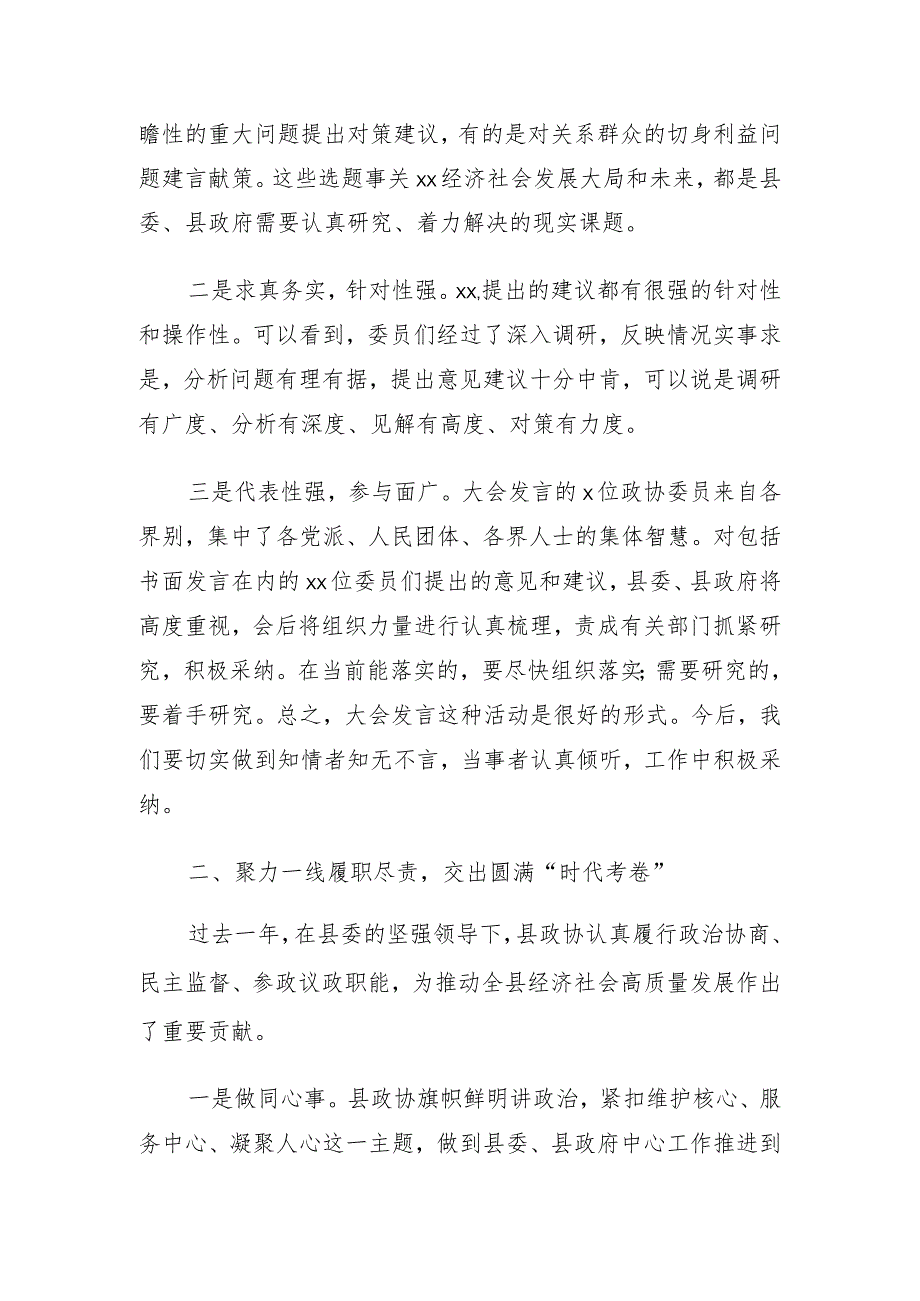 瞻性的重大问题提出对策建议，有的是对关系群众的切身利益问
题建言献策。这些选题事关xx经济社会发展大局和未来，都是县
委、县政府需要认真研究、着力解决的现实课题。
二是求真务实，针对性强。xx,提出的建议都有很强的针对性
和操作性。可以看到，委员们经过了深入调研，反映情况实事求
是，分析问题有理有据，提出意见建议十分中肯，可以说是调研
有广度、分析有深度、见解有高度、对策有力度。
三是代表性强，参与面广。大会发言的x位政协委员来自各
界别，集中了各党派、人民团体、各界人士的集体智慧。对包括
书面发言在内的xx位委员们提出的意见和建议，县委、县政府将
高度重视，会后将组织力量进行认真梳理，责成有关部门抓紧研
究，积极采纳。在当前能落实的，要尽快组织落实；需要研究的，
要着手研究。总之，大会发言这种活动是很好的形式。今后，我
们要切实做到知情者知无不言，当事者认真倾听，工作中积极采
纳。
二、聚力一线履职尽责，交出圆满“时代考卷”
过去一年，在县委的坚强领导下，县政协认真履行政治协商、
民主监督、参政议政职能，为推动全县经济社会高质量发展作出
了重要贡献。
一是做同心事。县政协旗帜鲜明讲政治，紧扣维护核心、服
务中心、凝聚人心这一主题，做到县委、县政府中心工作推进到